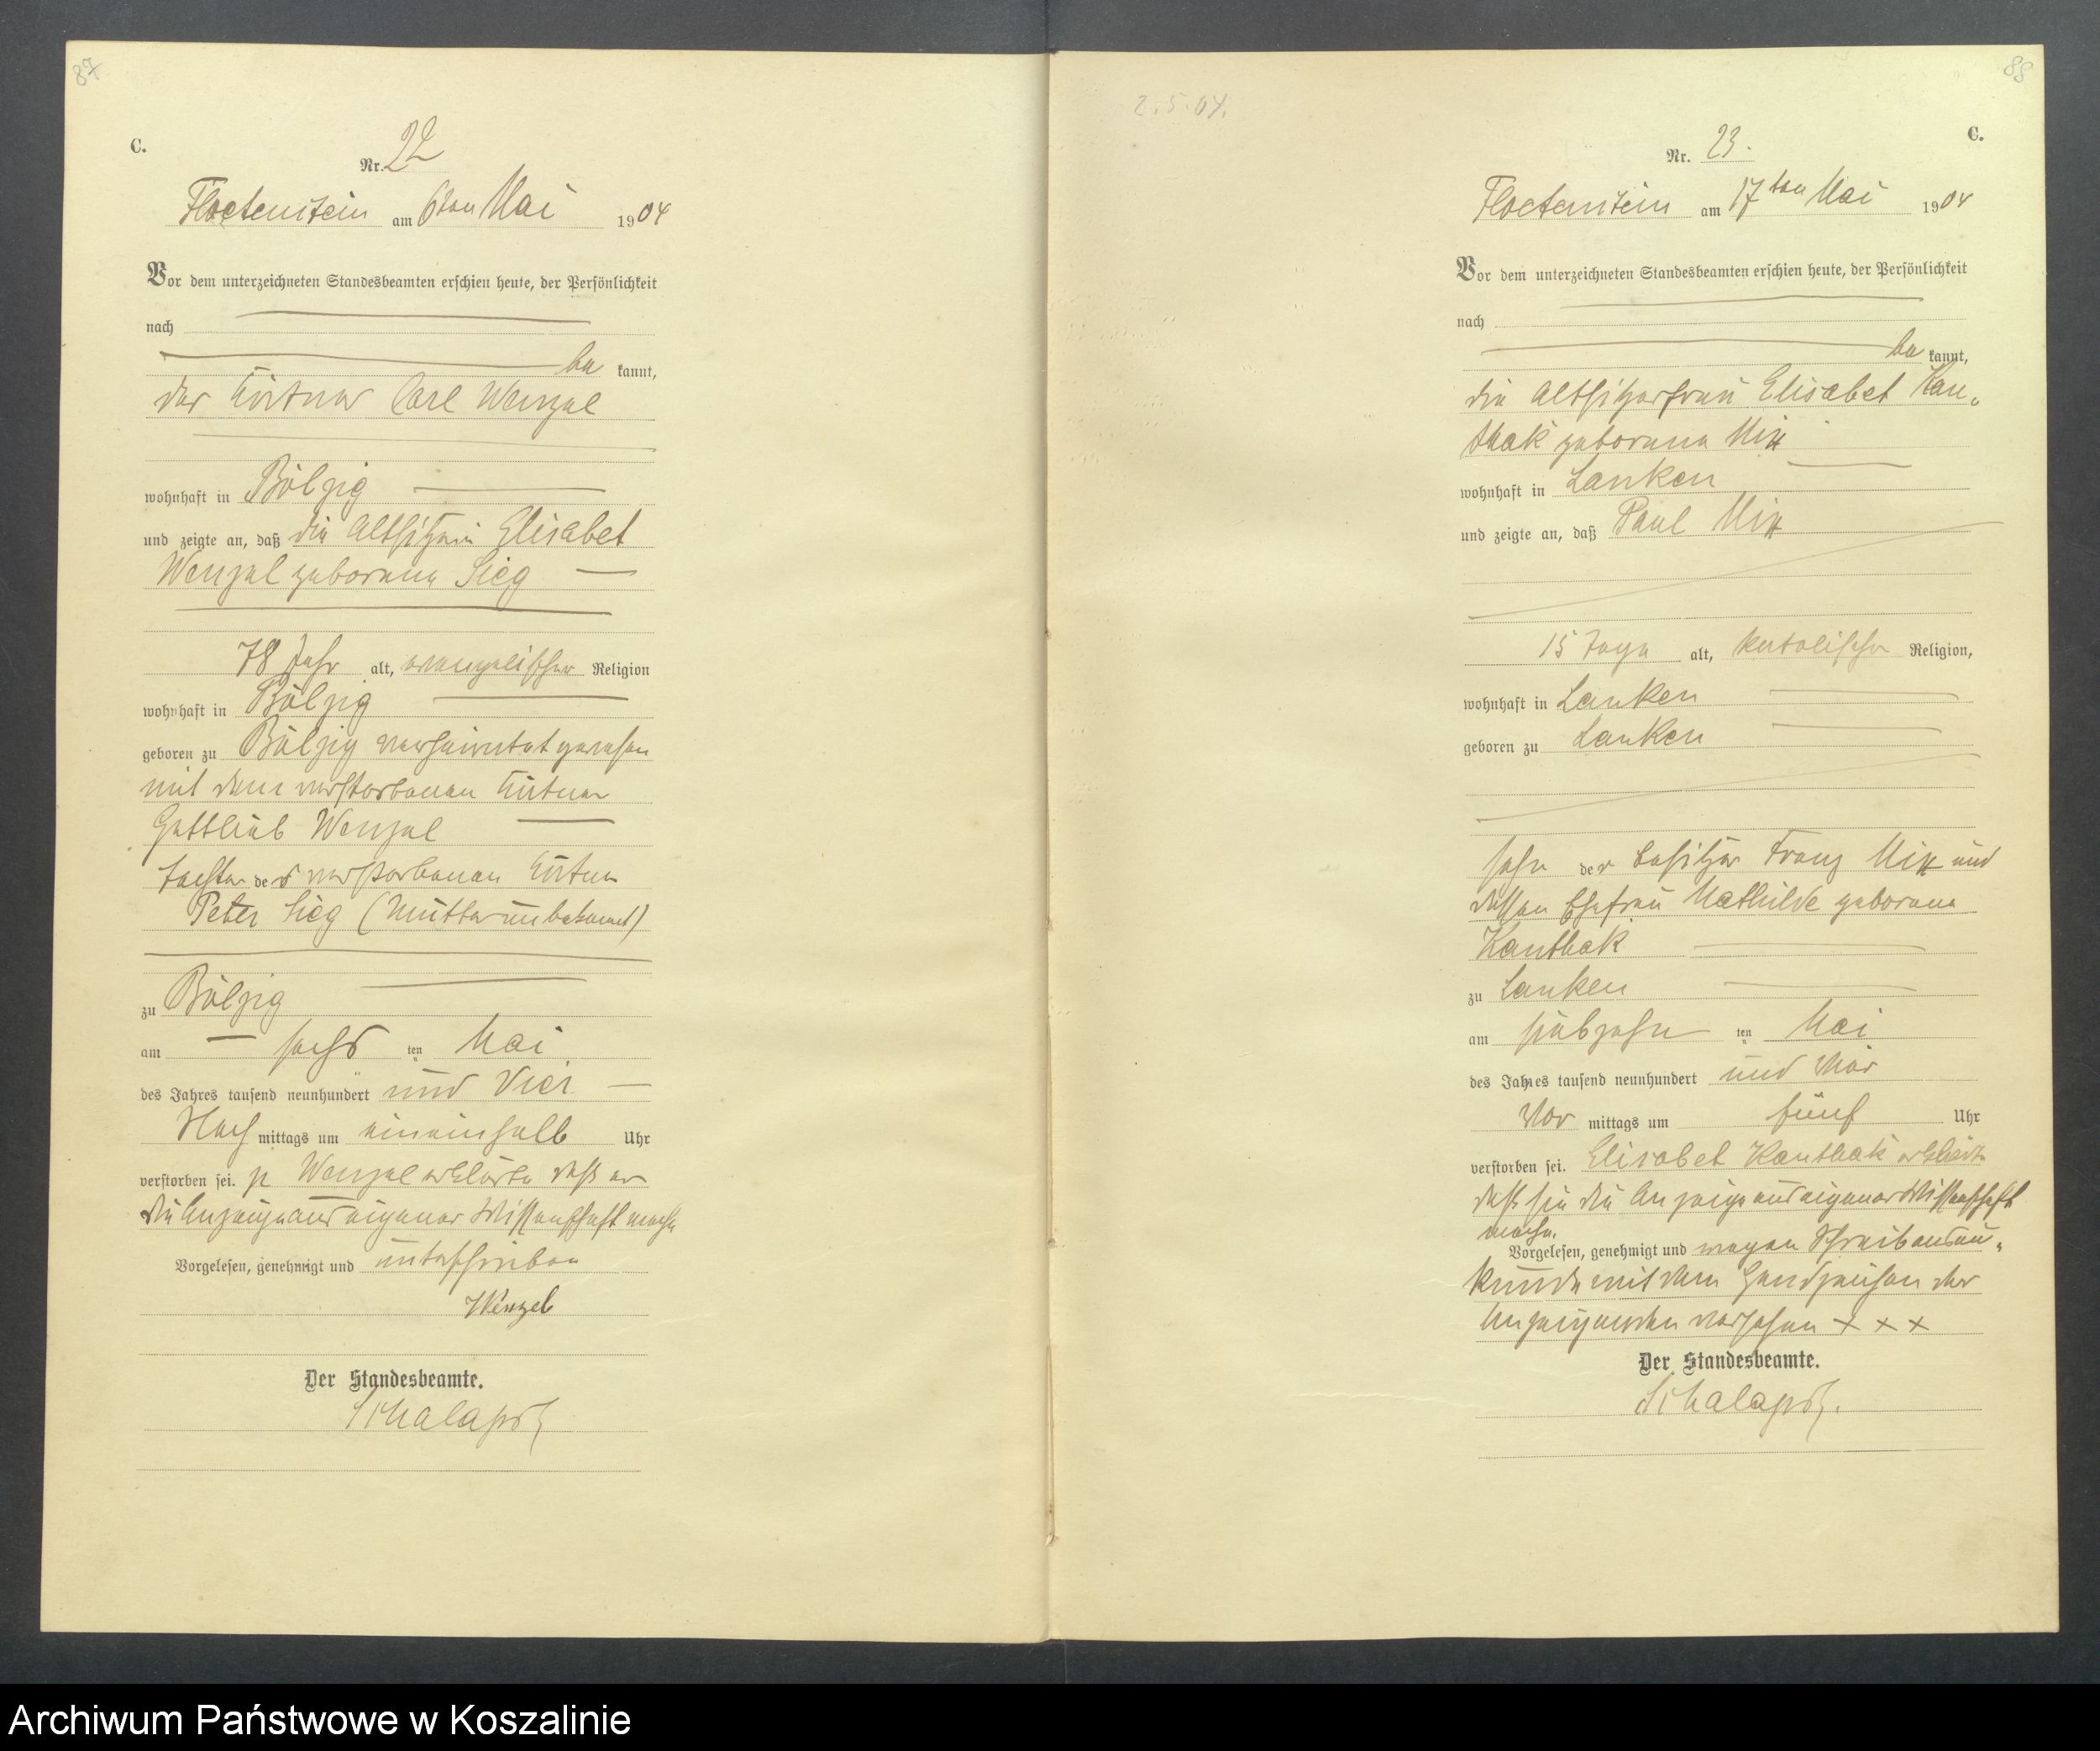 87
C.
Nr. 22
Floetenstein am 6ten Mai 1904
Vor dem unterzeichneten Standesbeamten erschien heute, der Persönlichkeit
nach
be kannt,
der Eigentümer Carl Wenzel
wohnhaft in Bölzig
und zeigte an, daß die Altsitzerin Elisabet
Wenzel geborene Sieg
78 Jahr alt, evangelischer Religion
wohnhaft in Bölzig
geboren zu Bölzig verheiratet gewesen
mit dem verstorbenen
Gottlieb Wenzel
Tochter des verstorbenen
Peter Sieg (Mutter unbekannt)
zu Bölzig
am sechs ten Mai
des Jahres tausend neunhundert und Vier
Nach mittags um eineinhalb Uhr
verstorben sei. p Wenzel erklärte daß er
die Anzeige aus eigener Wissenschaft mache
Vorgelesen, genehmigt und unterschrieben
Wenzel
Der Standesbeamte.
Schalapski
88
2.5.04.
C.
Nr. 23.
Floetenstein am 17ten Mai 1904
Vor dem unterzeichneten Standesbeamten erschien heute, der Persönlichkeit
nach
be kannt,
die Altsitzerfrau Elisabet Kan-
thak geborene Mix
wohnhaft in Lanken
und zeigte an, daß Paul Mix
15 Tage alt, katolischer Religion,
wohnhaft in Lanken
geboren zu Lanken
Sohn der Besitzer Franz Mix und
dessen Ehefrau Mathilde geborene
Kanthak
zu Lanken
am siebzehn ten Mai
des Jahres tausend neunhundert und vier
Vor mittags um fünf Uhr
verstorben sei. Elisabet Kanthak erklärte
daß sie die Anzeige aus eigener Wissenschaft
mache.
Vorgelesen, genehmigt und wegen Schreibensun-
kunde mit dem Handzeichen der
Anzeigenden versehen + + +
Der Standesbeamte.
Schalapski.
Archiwum Państwowe w Koszalinie